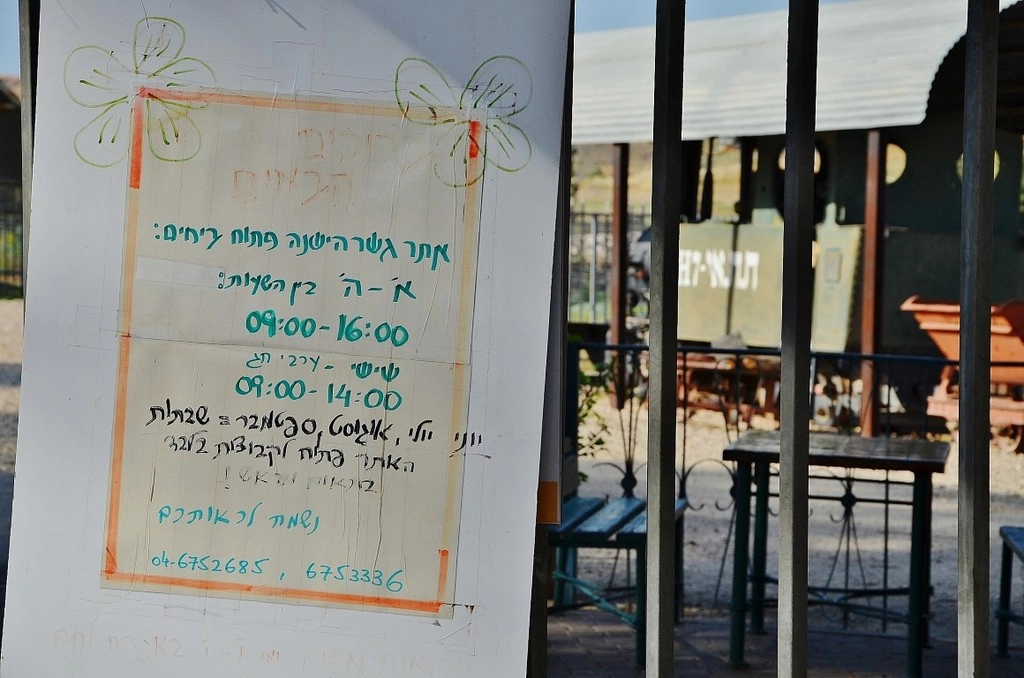 הבאים
אתר גשר הישנה פתוח בימים:
א׳ - ה׳ בין השעות:
09:00-16:00
שישי - ערבי חג
09:00-14:00
יוני יולי, אוגוסט, ספטמבר = שבתות
האתר פתוח לקבוצות בלבד
בתאום מראש!
נשמח לראותכם
04-6752685, 6753336